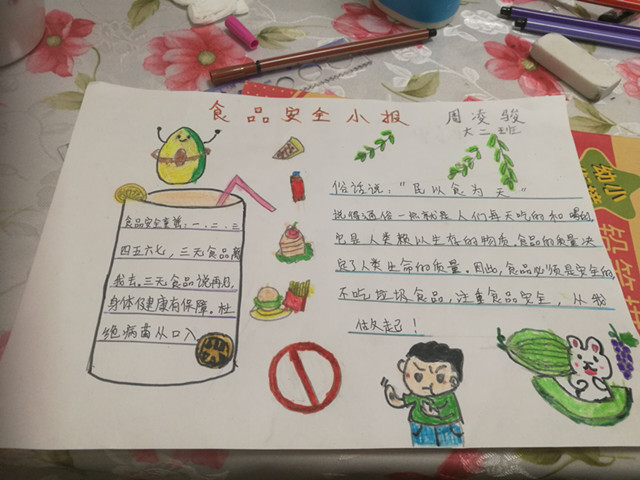 食品安全小报
周凌骏
大二班
食品安全童谣：一、二、三
四五六七，三无食品离
我去。三无食品说再见，
身体健康有保障。杜
绝病菌从口入
俗话说："民以食为天"
说得通俗一点就是人们每天吃的和喝的
它是人类赖以生存的物质。食品的质量决
定了人类生命的质量。因此，食品必须是安全的，
不吃垃圾食品，注重食品安全，从我
做起！
幼小